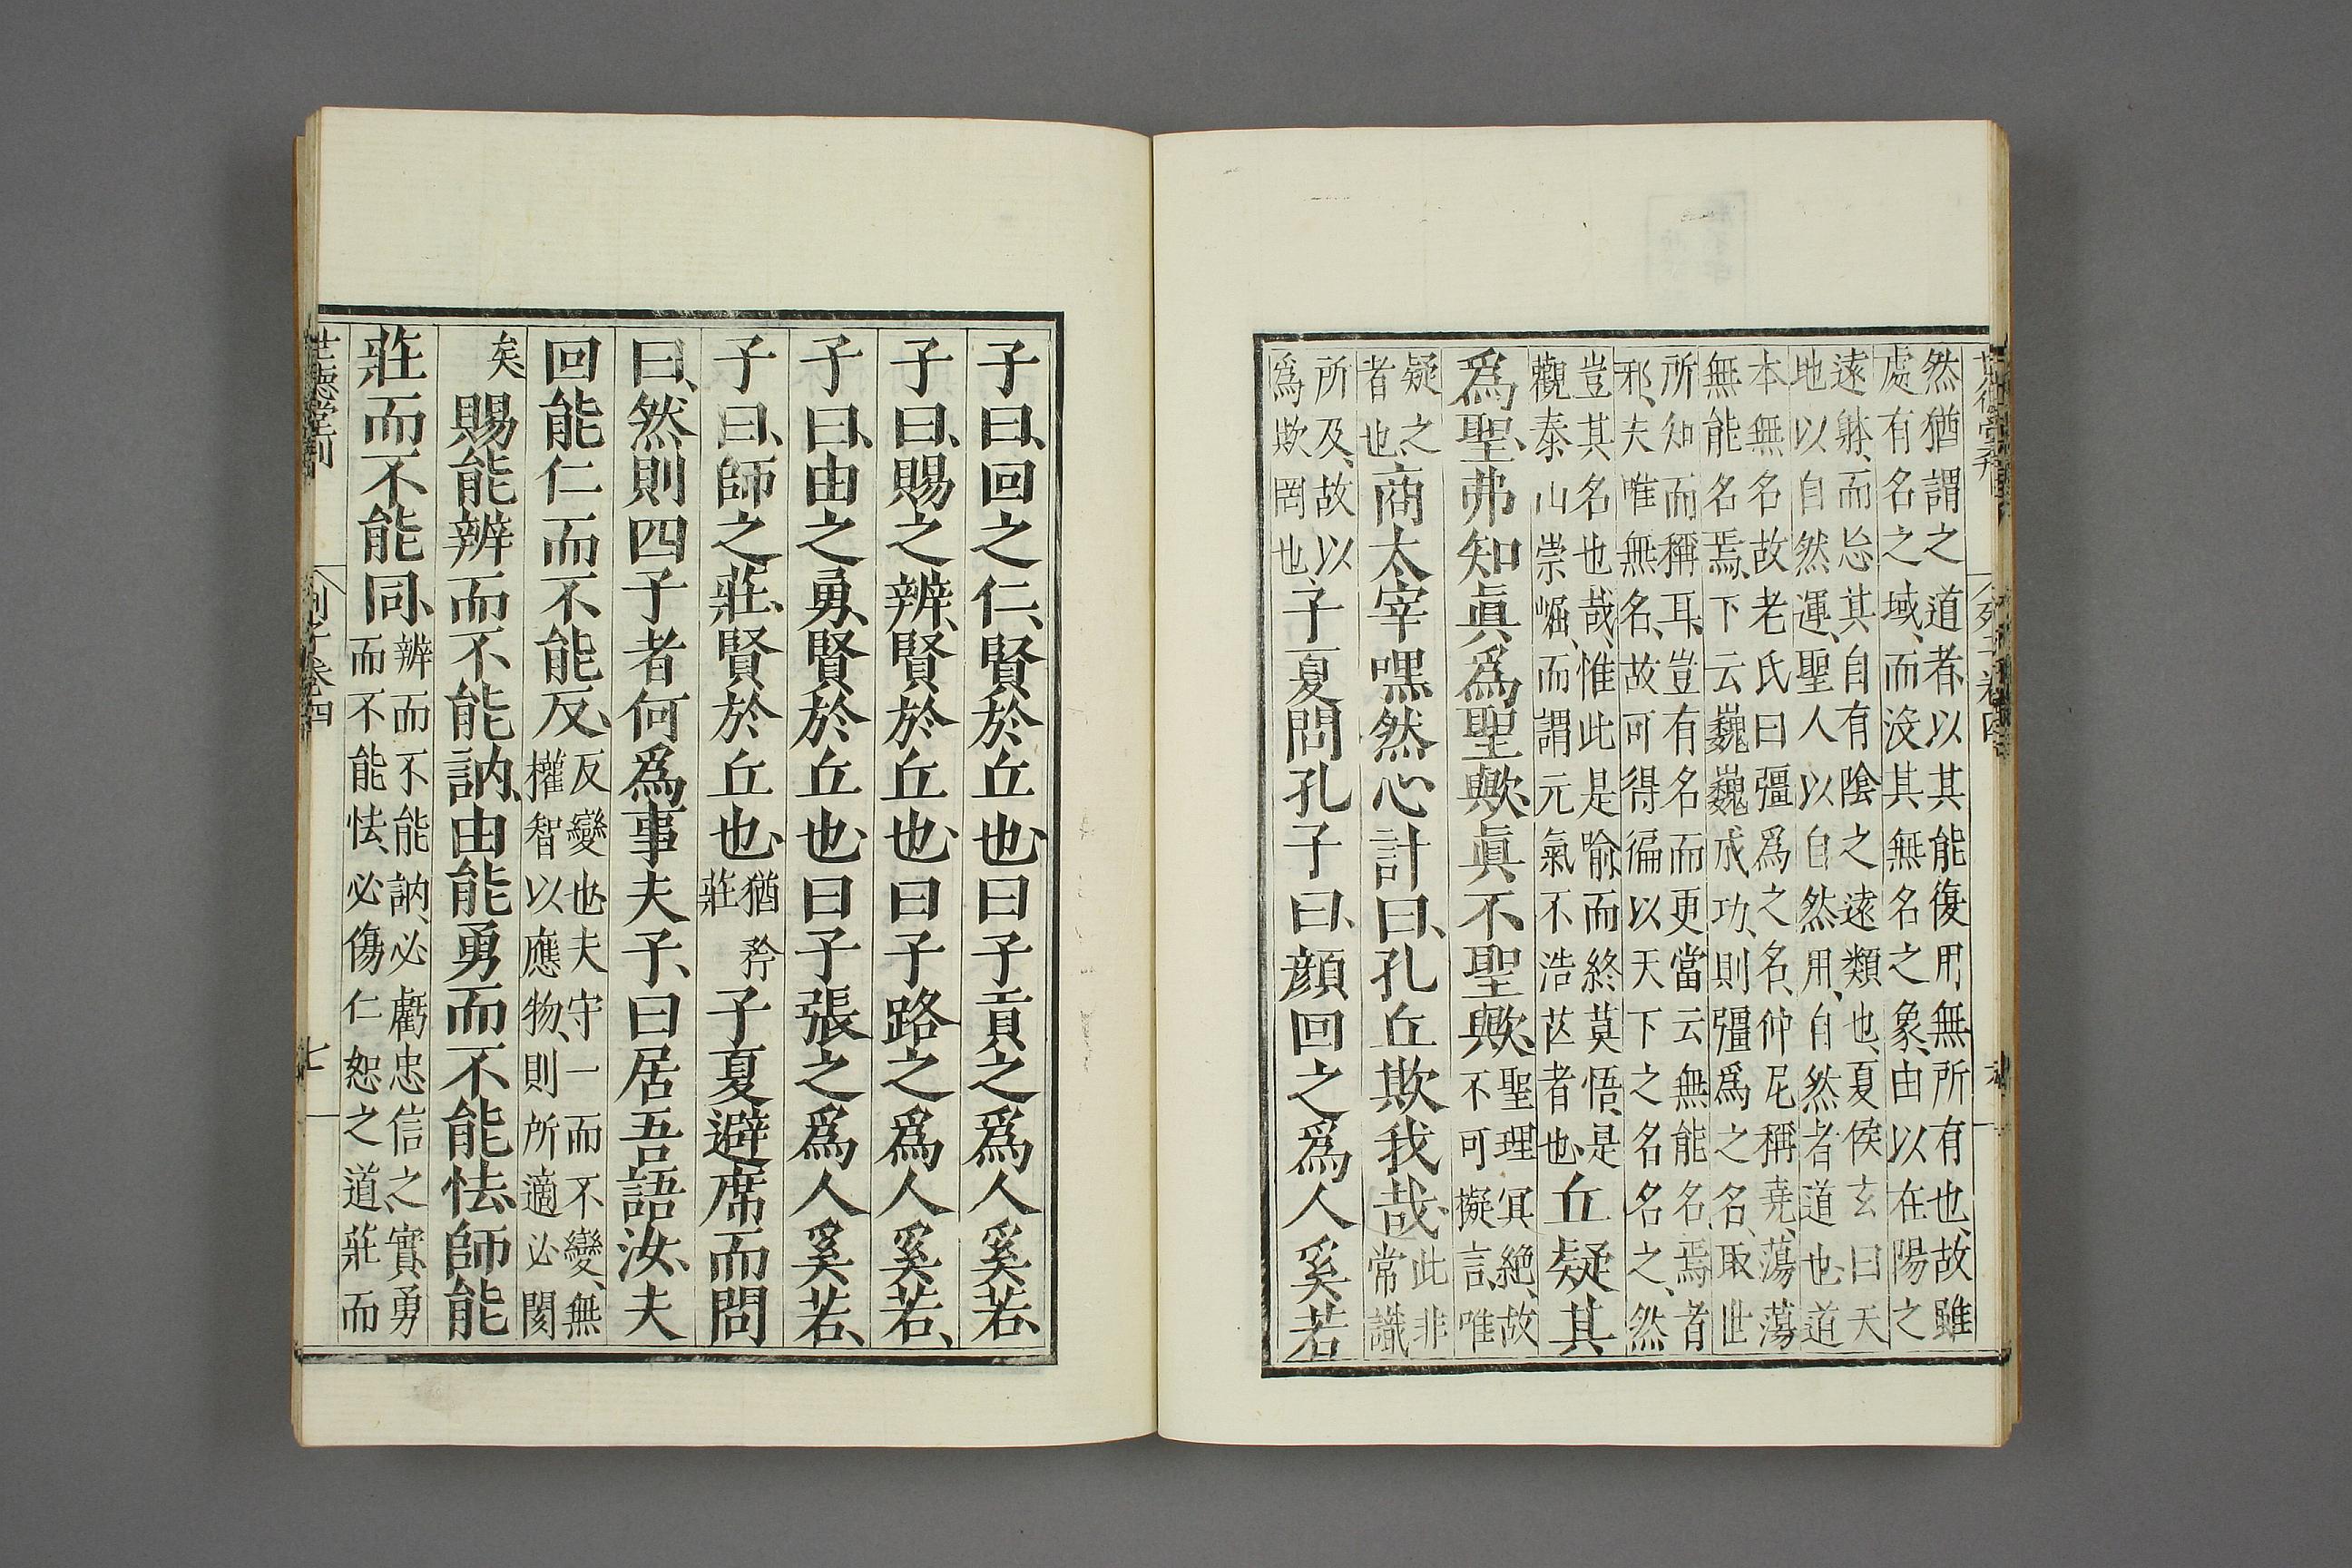 世德堂刊　列子卷四　六
然猶謂之道者、以其能復用無所有也、故雖
處有名之域、而沒其無名之象、由以在陽之
遠躰、而忘其自有陰之遠類也、夏侯玄曰天
地以自然運、聖人以自然用、自然者道也、道
本無名故老氏曰彊爲之名、仲尼稱堯、蕩蕩
無能名焉、下云巍巍成功、則彊爲之名、取世
所知而稱耳、豈有名而更當云無能名焉者
邪、夫唯無名、故可得徧以天下之名名之、然
豈其名也哉、惟此是喻而終莫悟、是
觀泰山崇崛、而謂元氣不浩茫者也
丘疑其
爲聖、弗知眞爲聖歟、眞不聖歟、
聖理冥絶、故
不可擬言、唯
疑之
者也
商太宰嘿然心計曰、孔丘欺我哉、
此非
常識
所及、故以
爲欺罔也
子夏問孔子曰、顔回之爲人奚若
子曰、回之仁、賢於丘也、曰子貢之爲人奚若、
子曰、賜之辨、賢於丘也、曰子路之爲人奚若、
子曰、由之勇、賢於丘也、曰子張之爲人奚若、
子曰、師之莊、賢於丘也、
猶矜
莊
子夏避席而問
曰、然則四子者何爲事夫子、曰居吾語汝、夫
回能仁而不能反、
反變也夫守一而不變、無
權智以應物、則所適必閡
矣
賜能辨而不能訥、由能勇而不能怯、師能
莊而不能同、
辨而不能訥、必虧忠信之實、勇
而不能怯、必傷仁恕之道莊而
世德堂刊　列子卷四　七